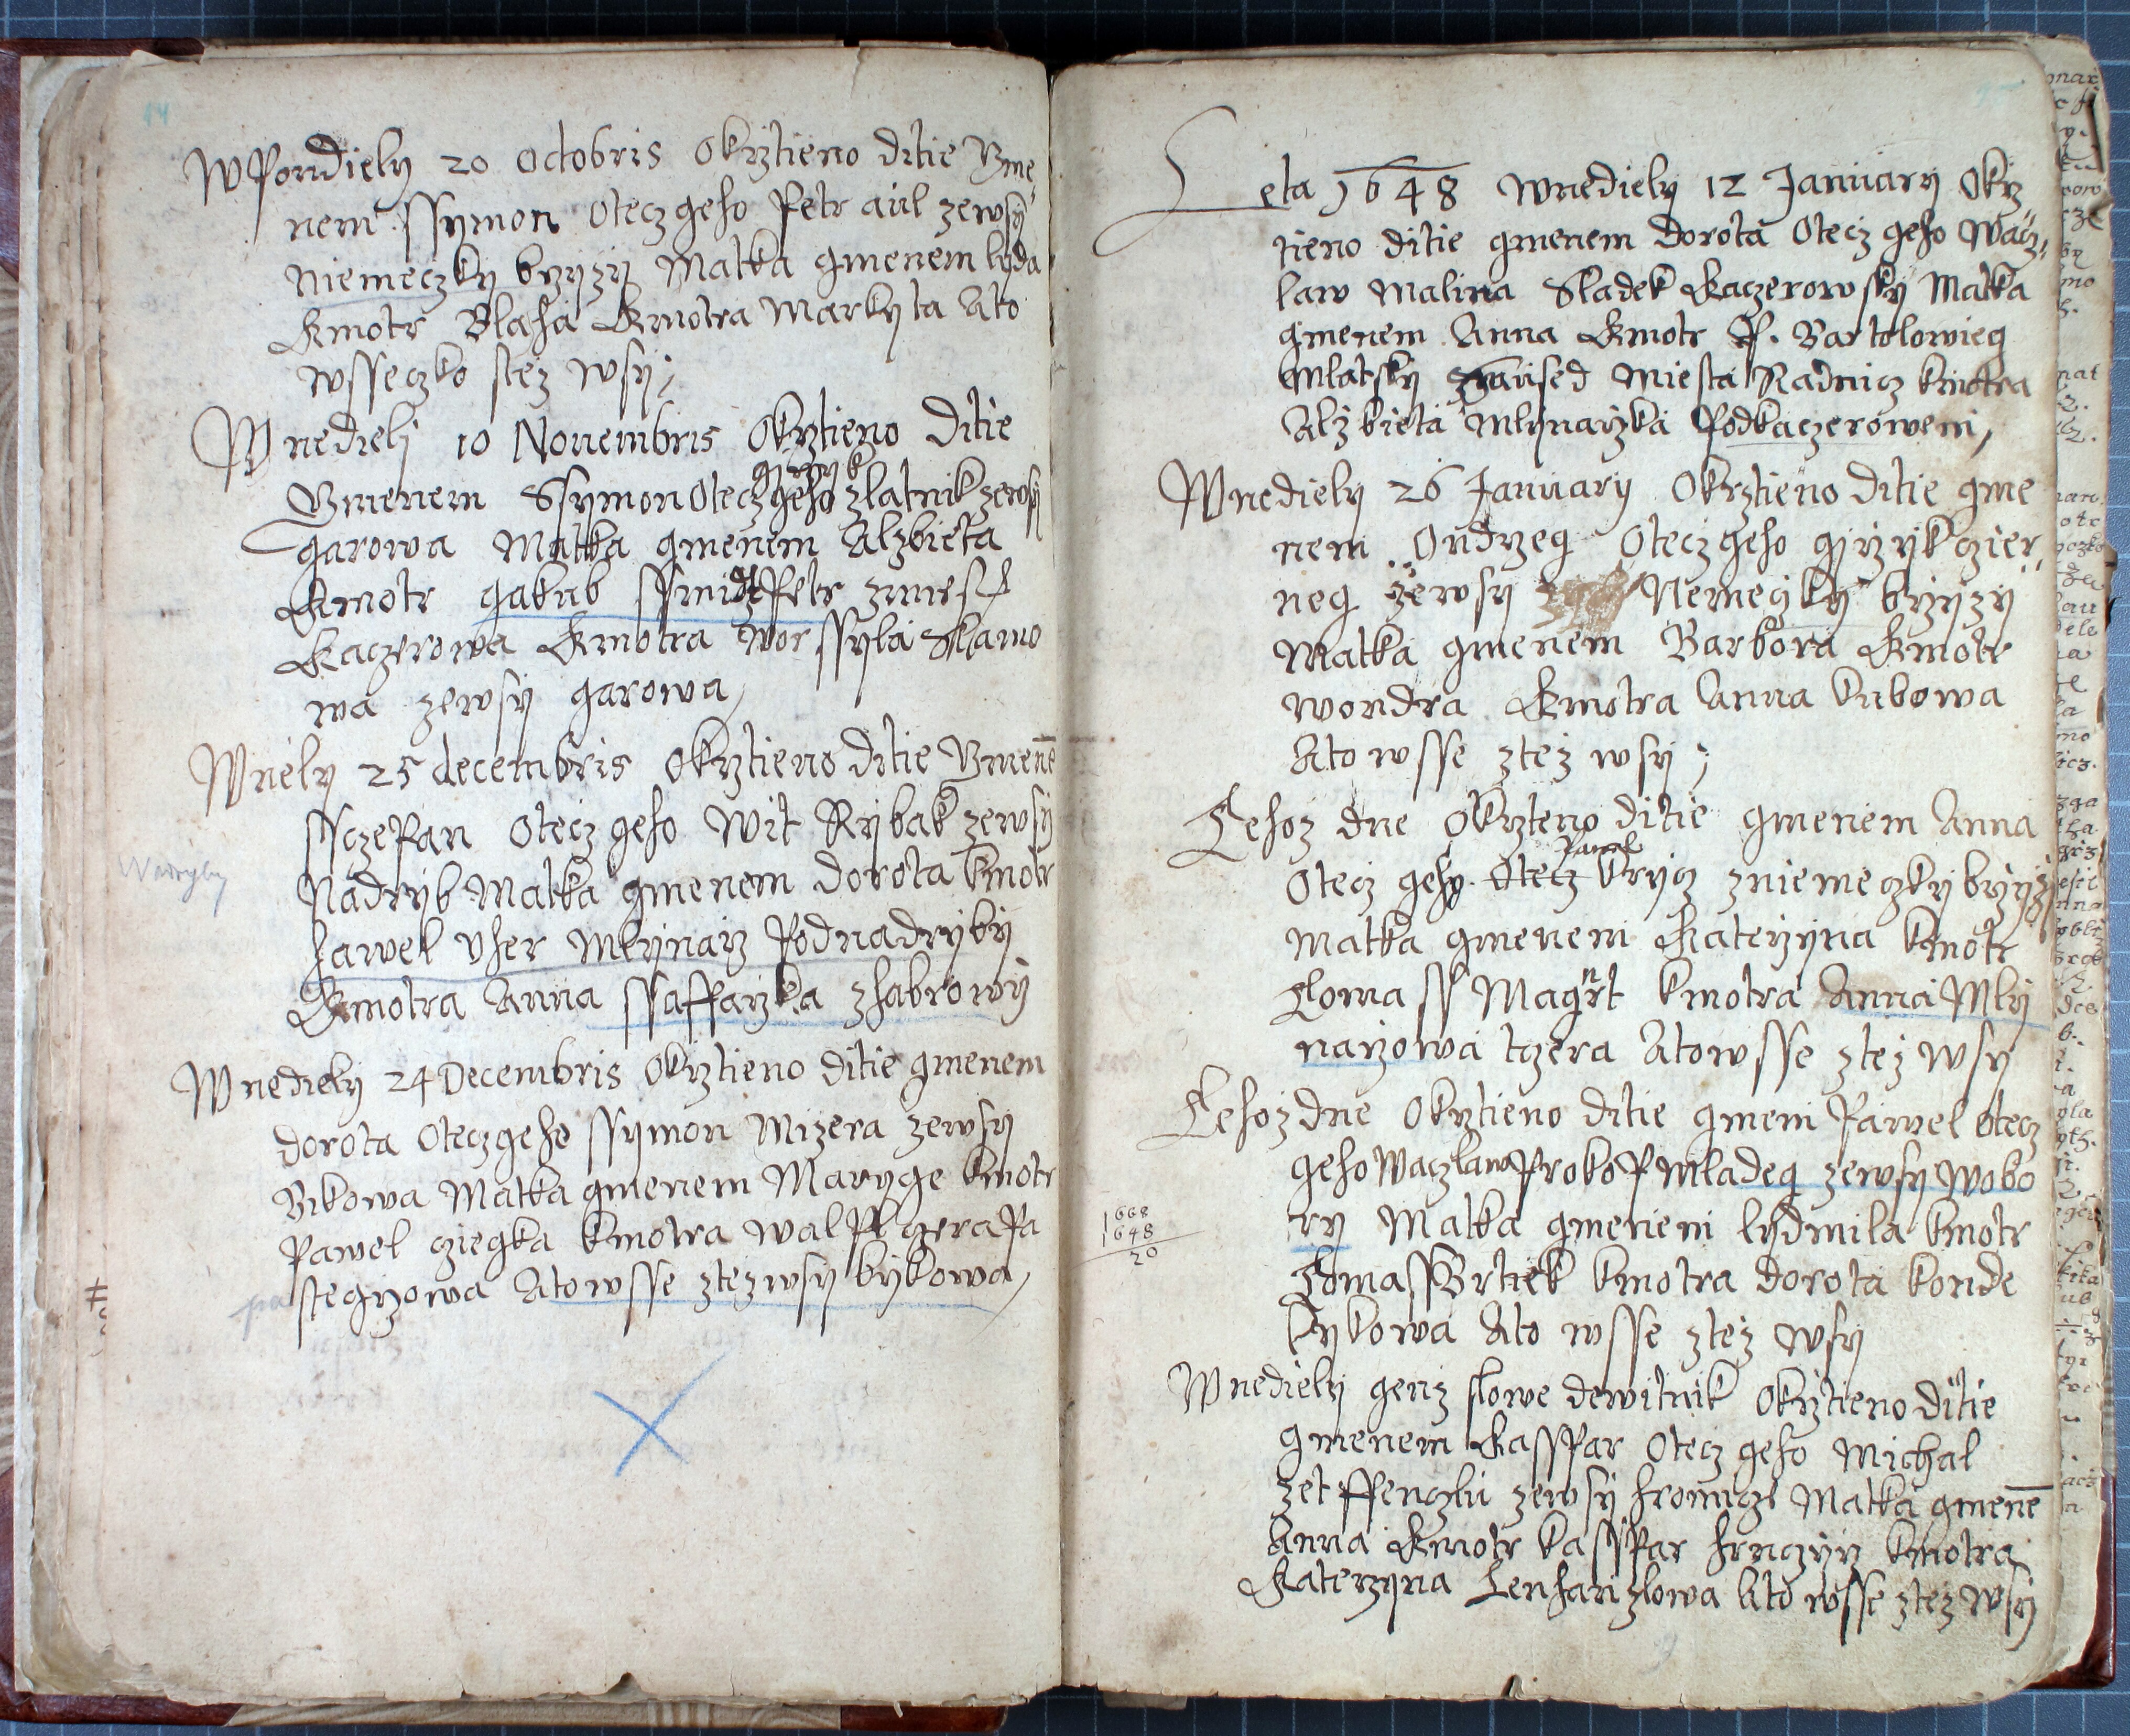 14
W Pondiely 20 octobris Okrztieno ditie Gme
nem Ssymon otecz geho Petr aul zewsy
Niemeczky brzyzy Matka gmenem lyda
Kmotr Blaha Kmotra Markyta Ato
wsseczko stez wsy;
W nedielj 10 Nouembris Okrztieno Ditie
girzyk
Gmenem Ssymon Otecz geho zlatnik zewsy
garowa Matka gmenem Alzbieta
Kmotr gakub Ssmidt Petr zmiest
Kaczerowa Kmotra worssyla Sklamo
wa zewsy garowa,
W nely 25 decembris Okrztieno ditie Gmenē
Ssczepan otecz geho Wit Rybak zewsy
Nadryby
Nadryb Matka gmenem dorota Kmotr
Hawel Vher Mlynarz Podnadryby
Kmotra Anna Ssaffarzka zhabrowy
W nediely 24 Decembris Okrztieno ditie gmenem
dorota Otecz geho Ssymon Mizera zewsy
Bikowa Matka gmenem Maryge Kmotr
Pawel cziegka Kmotra walpurgera Pa
stegrzowa Ato wsse ztez wsy bykowa,
Leta 1648 wnediely 12 January Okrz
tieno ditie gmenem dorota Otecz geho Wacz
law Malina Sladek Kaczerowsky Matka
gmenem Anna Kmotr P. Bartolomieg
Mlatsky Saused Miesta Radnicz Kmotra
Alzbieta Mlynarzka Podkaczerowem,
W nediely 26 January Okrztieno ditie gme
nem Ondrzeg Otecz geho girzyk czier
neg zewsy Nemeczky brzyzy
Matka gmenem Barbora Kmotr
wondra Kmotra Anna Kubowa
Ato wsse ztez wsy;
Tehoz dne Okrzteno ditie gmenem Anna
Pawel
Otecz gehy Otecz Krycz zniemeczky brzyzy
Matka gmenem Katerzyna Kmotr
Tomass Magnrt Kmotra Anna Mly
narzowa tczera Ato wsse ztez wsy
Tehoz dne Okrztieno ditie gmem Pawel otecz
geho Waczlaw Prokop Mladeg zewsy wobo
ry Matka gmenem lydmila Kmotr
1668
1648
20
Tomass Brtiek Kmotra dorota Konde
lykowa Ato wsse ztez wsy
W nediely genz slowe dewitnik Okrztieno ditie
gmenem Kasspar Otecz geho Michal
zet ffenczlu zewsy hromicze Matka gmenē
Anna Kmotr Kasspar hrnczyrz Kmotra
Katerzyna Lenharzlowa Ato wsse ztez wsy